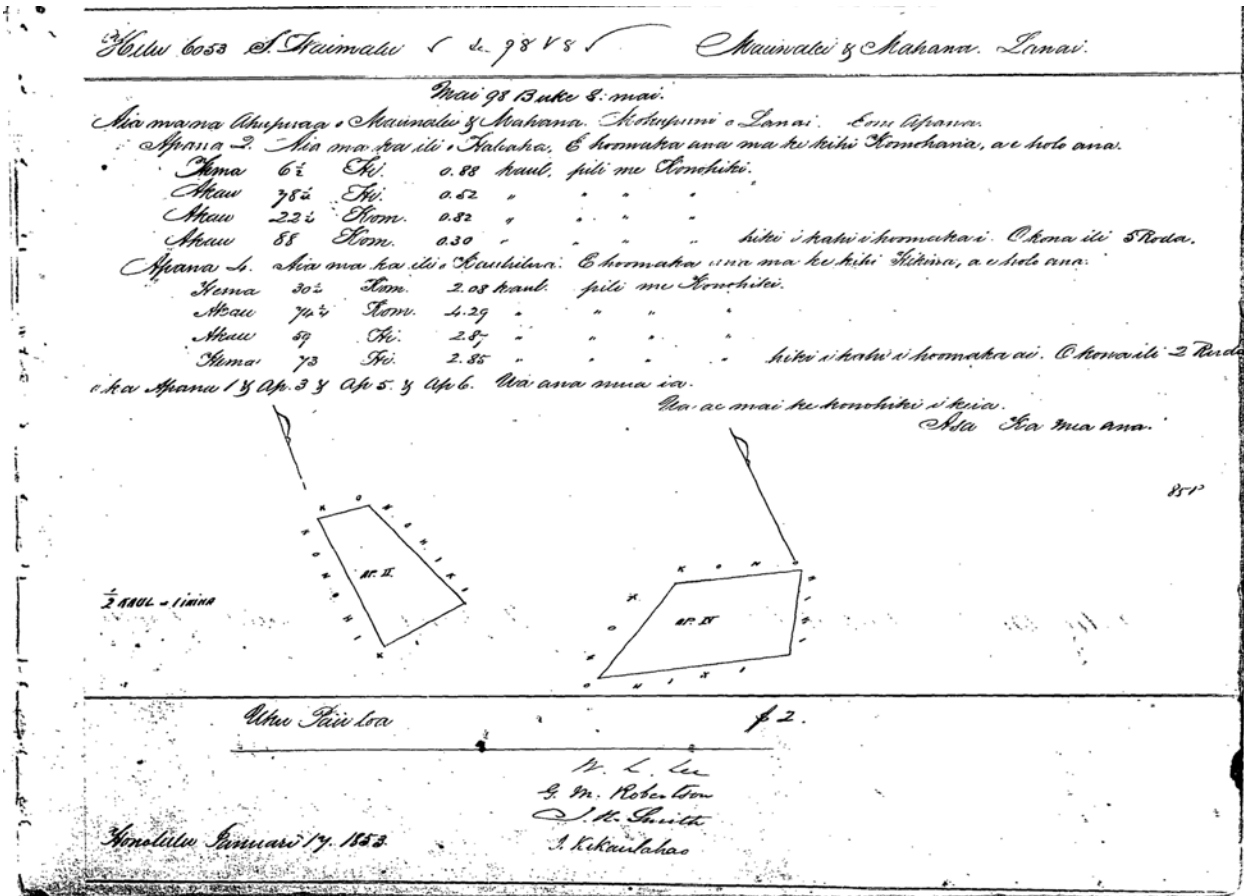 Helu 6053 S. Waimalu √ de 98 V 8 √ Maunalei & Mahana. Lanai.
Mai 98 Buke 8. mai.
Aia ma na Ahupuaa o Maunalei & Mahana. Mokupuni o Lanai. Eono Apana.
Apana 2. Aia ma ka ili o Kaleaha. E hoomaka ana ma ke kihi Komohana, a e holo ana.
Hema 6½ Hi. 0.88 kaul. pili me Konohiki.
Akau 78½ Hi. 0.52 " " " "
Akau 22½ Kom. 0.82 " " " "
Akau 88 Kom. 0.30 " " " " hiki i kahi i hoomaka i. O kona ili 5 Roda.
Apana 4. Aia ma ka ili o E hoomaka ana ma ke kihi Hikina, a e holo ana.
Hema 30½ Kom. 2.08 kaul. pili me Konohiki.
Akau 74¼ Kom. 4.29 " " " "
Akau 59 Hi. 2.87 " " " "
Hema 73 Hi. 2.85 " " " " hiki i kahi i hoomaka ai. O kona ili 2 Ruda
o ka Apana 1 & Ap. 3 & Ap 5. & Ap 6. Ua ana mua ia.
Ua ae mai ke konohiki i keia.
Asa Ka mea ana.
85P
KONOHIKI
KONOHIK
AP. II.
½ KAUL = 1 INIHA
KONOHIKI
KONOHIKI
AP. IV
Uku Pau loa $2.
W. L. Lee
G. M. Robertson
J. H. Smith
J. Kekaulahao
Honolulu Januari 17. 1853